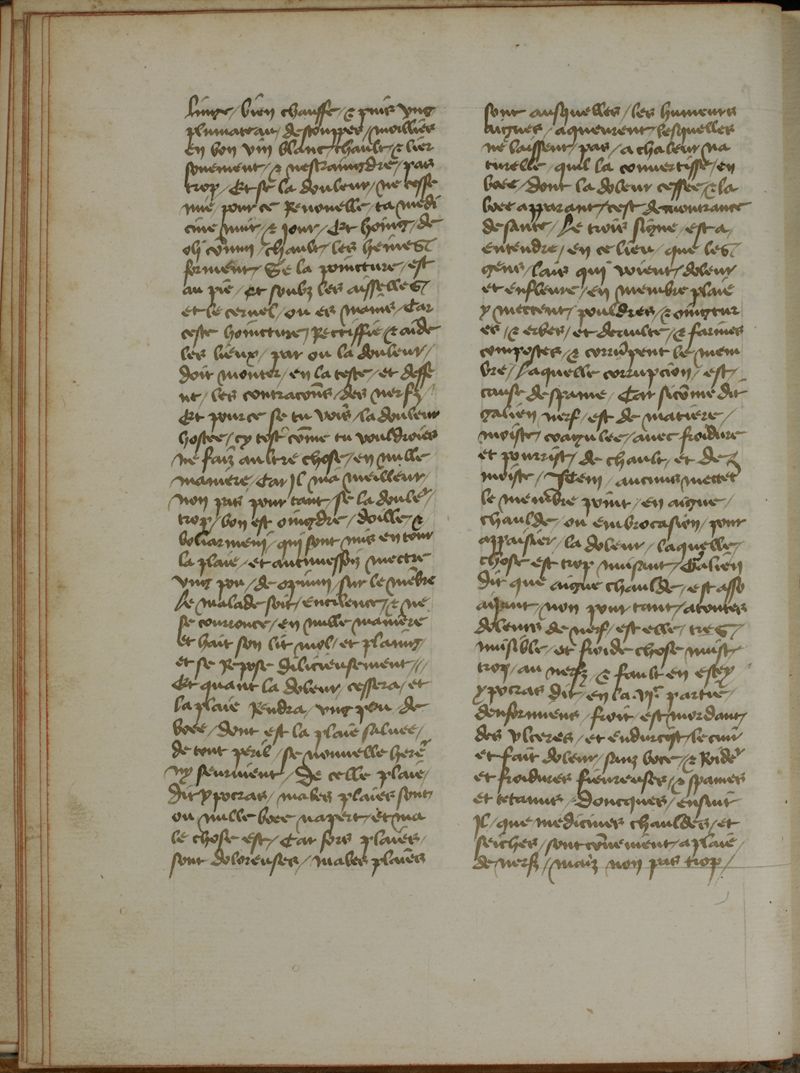 linge / bien chauffe / & puis ung
plumaceau / destouppes / moillies
en bon vin blanc / chault / & lier
souement / & nestraingdre / pas
trop / Et se la douleur / ne cesse
mie / pour ce Renouelle / ta medi
cine / nuit / & jour / Et hoing / de
oli cōmū / chault / les heures
forment / Se la poincture / est
au pie / et soubz les aisselles
et le cervel / ou es mains / Car
ceste hoincture / Rectiffie & aide
les lieux / par ou la douleur /
doit monter / en la teste / et deffe
nt / les contracōns / des nerfz /
Et pour ce se tu vois / la douleur
hostee / cy tost cōme tu vouldroies
ne faiz aultre chose / en nulle
maniere / Car Il na meilleur /
non pas pour tant / se la doule
trop / bon est oingdre / doille &
boliarmeni / qui sont mis entour
la plaie / et mectre
ung pou / de opium / sur le mēbre
Le malade soit / en cilence / & ne
se courrouce / en nulle maniere
et hait son lit mol / et plaing
et se Repose dilicieusement //
Et quant la doleur / cessera / et
la plaie Rendra / ung pou / de
boee / dont est la plaie saluee /
de tout peril / se nouvelle
ny seurvient / De celle plaie /
dit ypocras / males plaies sont
ou nulle boee napert / et ma
le chose est / Car fors plaies /
sont doloreuses / males plaies
sont ausquelles / les humeurs
aigues / aqueurent / lesquelles
ne laissent / pas / a chaleur na
turelle / quil la convertisse / en
boee / dont la doleur cessee / & la
boee apparant / cest demonstrance
de sante / Le trois signe / est a /
entendre / en ce lieu / que les
gens / lais qui voient / doleur /
et enfleure / en membre plaie
y mectent / pouldres / & oingtur
es / & erbes / et / & farines
composees / & corrūpent le mem
bre / Laquelle corrupcion / est /
cause despasme / Car sicōme dit
galien nerf / est de matiere /
moiste / coagulee / avec froidure
et pourrist / de chault / et de
moiste / Item / aucuns mectēt
le membre point / en aigue /
chaulde / ou embrocasion / pour
appaisier / la doleur / laquelle /
chose est trop nuisant / Galien
dit que aigue chaulde / est asso
aigant / non pour tant / a toutes
doleurs de nerf / est elle / tres
nuisible / et froide chose nuist /
trop / au nerfz / & fault en
ypocras dit / en la vie partie /
/ froit / est mordant /
des ulceres / et endurcist / le cuir
et fait doleur / sanz boee / & Roide
et froidures fieureuses / & spasmes
et tetanus / Doncques / ensuit
Il / que medicines chauldes / et
seiches / sont cōvenient / a plaie /
de nerfz / maiz non pas trop /